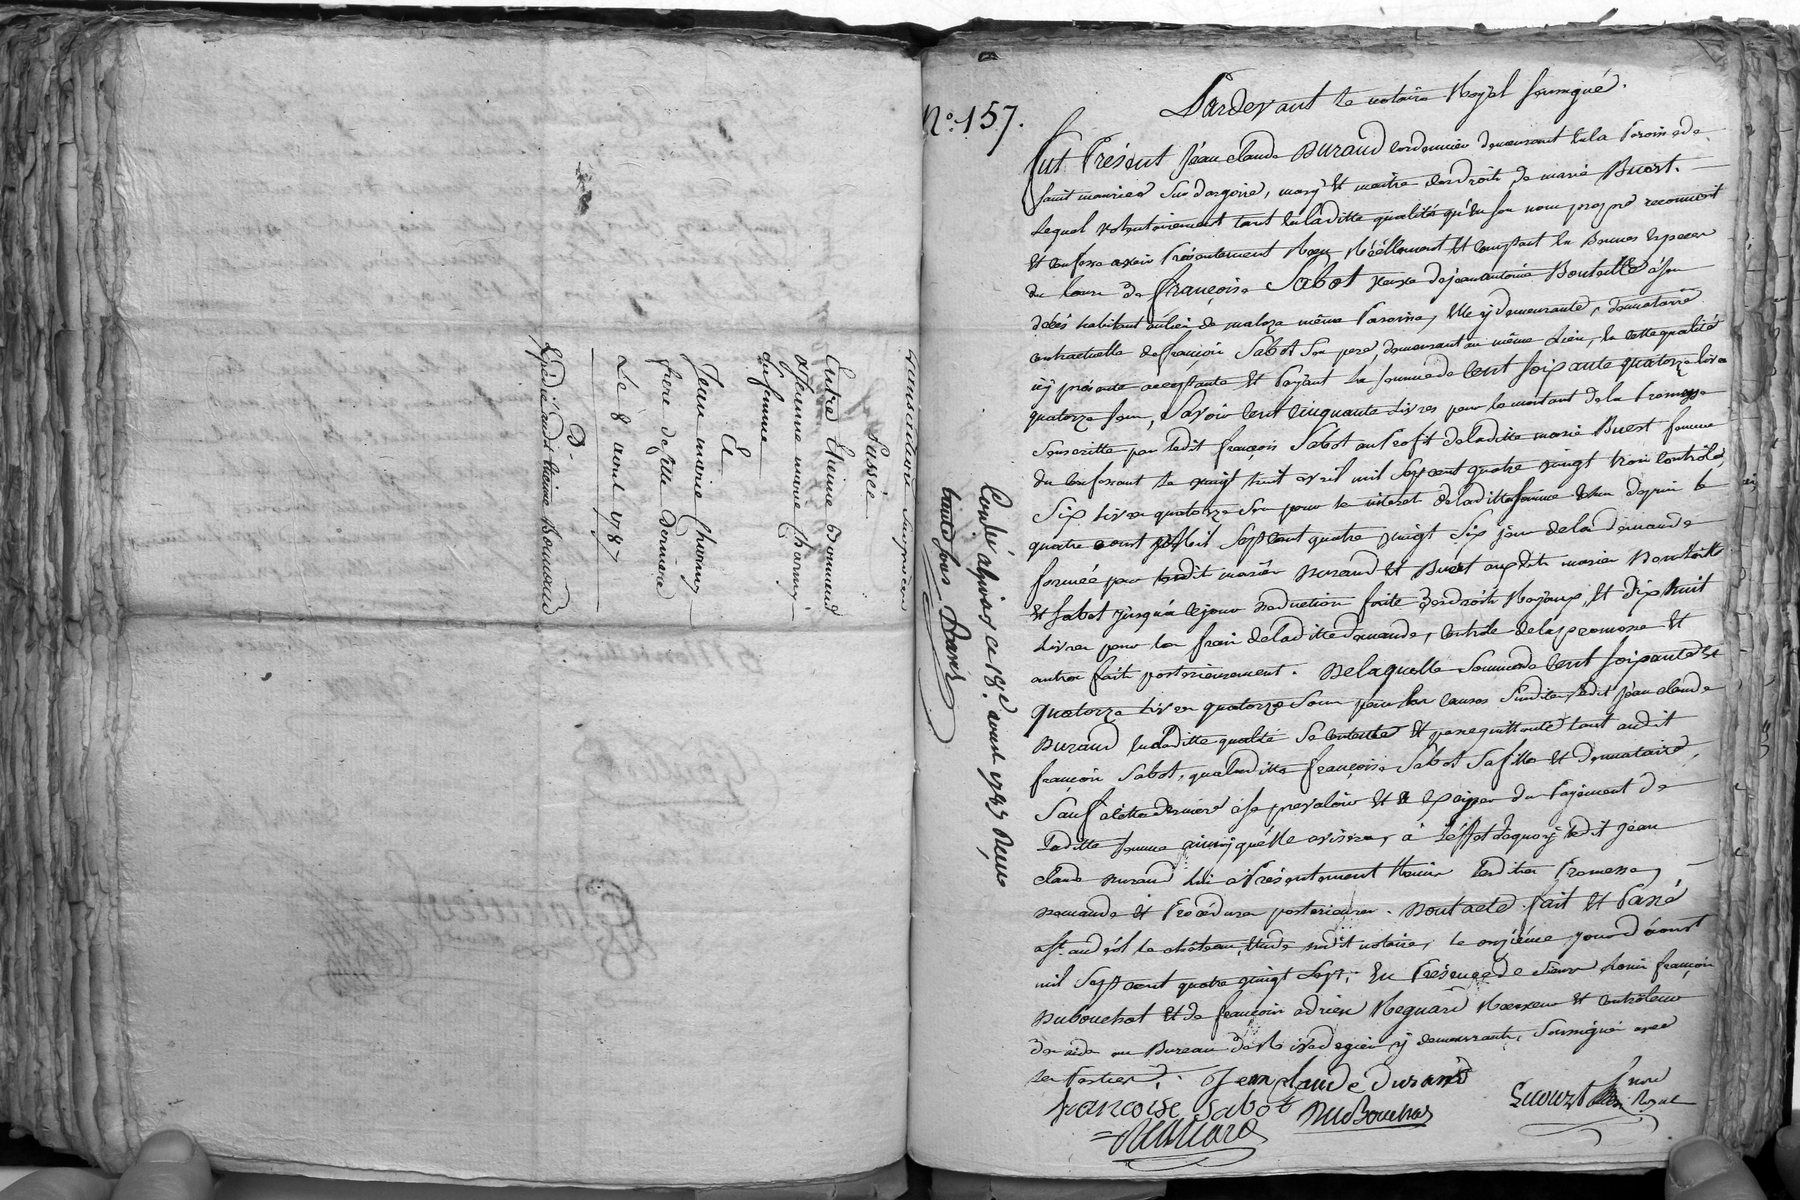 Transaction
Passée
Entre Etienne Bonnand
et Jeanne marie Charmy
sa femme
Et
Jean marie Charmy
frere de cette derniere
Le 8 aout 1787
N.° 157.
Pardevant le notaire Royal soussigné.
Fut Présent Jean claude Durand cordonnier demeurant en la Paroisse de
saint maurice sur dargoire, mary et maitre des droits de marie Buert.
Lequel volontairement tant en laditte qualité qu'en son nom propre reconnoit
et confesse avoir Présentement Reçu Réellement et comptant en Bonnes Especes
du cours de françoise Sabot veuve de jean antoine Bonteille à son
décès habitant au lieu de maloza même Paroisse, Elle y demeurante, donnataire
contractuelle de françois Sabot son pere, demeurant au même Lieu, en cette qualité
icy presente acceptante et Payant la somme de Cent soixante quatorze livres
quatorze sous, Savoir Cent Cinquante Livres pour le montant de la Promesse
Souscritte par ledit françois Sabot au Profit de laditte marie Buert femme
du Confessant le vingt huit avril mil Sept cent quatre vingt trois Controlée,
Six Livres quatorze sous pour les interet de laditte somme depuis le
quatre aout mil Sept cent quatre vingt Six jour de la demande
formée par lesdit mariés Durand et Buert auxdits mariés Bonteille
et Sabot jusqu'à ce jour deduction faite des droits Royaux, et dix huit
Livres pour les frais de laditte demande, Controle de la promesse et
autres faits posterieurement. De laquelle Somme de Cent soixante et
quatorze Livres quatorze Sous pour les causes susdites, ledit Jean claude
Durand en laditte qualité Se Contente et en quitte tant audit
françois Sabot, que laditte françoise Sabot sa fille et donnataire,
Sauf à cette derniere à se prevaloir et du Payement de
laditte somme ainsy qu'elle avisera, à l'effet de quoy ledit Jean
claude Durand lui a Présentement Remis lesdites Promesse,
Demande et Procédures posterieures. Dont acte fait et Passé
à St. andéol le château, Etude dudit notaire, le onzième jour d'aoust
mil Sept cent quatre vingt Sept, En Présence de sieurs Louis françois
Dubouchet et de françois adrien Regnard Receveur et Controleur
des aides au Bureau de Rivedegier y demeurants, Soussignés avec
les Parties.
Jean Claude durand
françoise Sabot
DuBouchet
Regnard
nore Royal
Conlé à givors ce 18e. aoust 1787 Reçu
trente sous